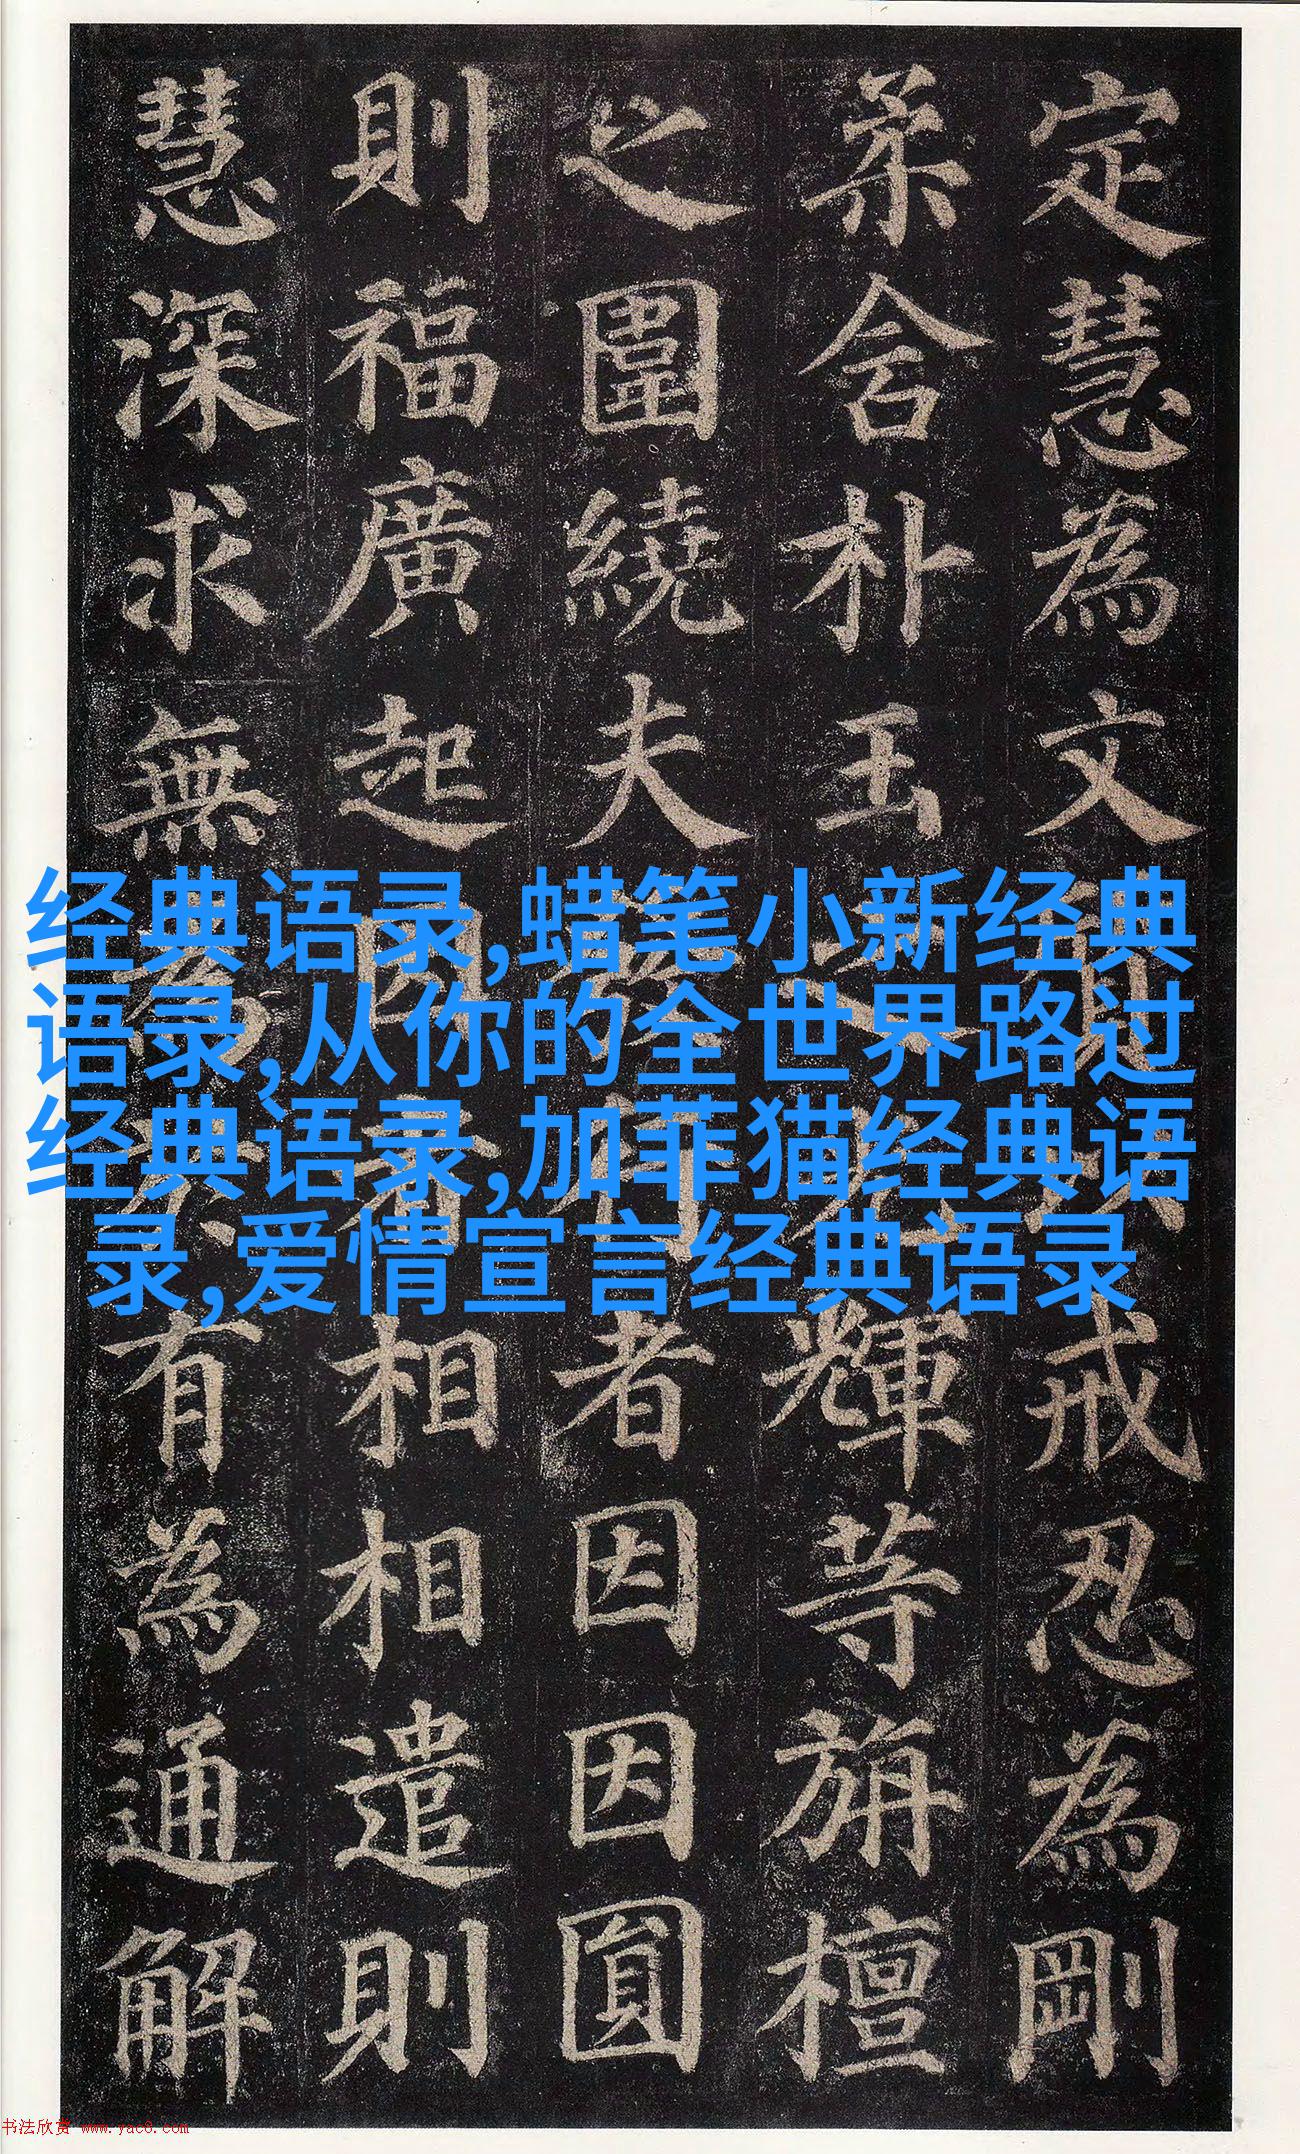 定慧為文質以戒忍為剛
柔含朴玉之光輝等旃檀
之圍繞夫發行者因因圓
則福廣起因者相相遣則
慧深求無為於有為通解
经典语录,蜡笔小新经典
语录,从你的全世界路过
经典语录,加菲猫经典语
录,爱情宣言经典语录
书法欣赏 www.yac8.com